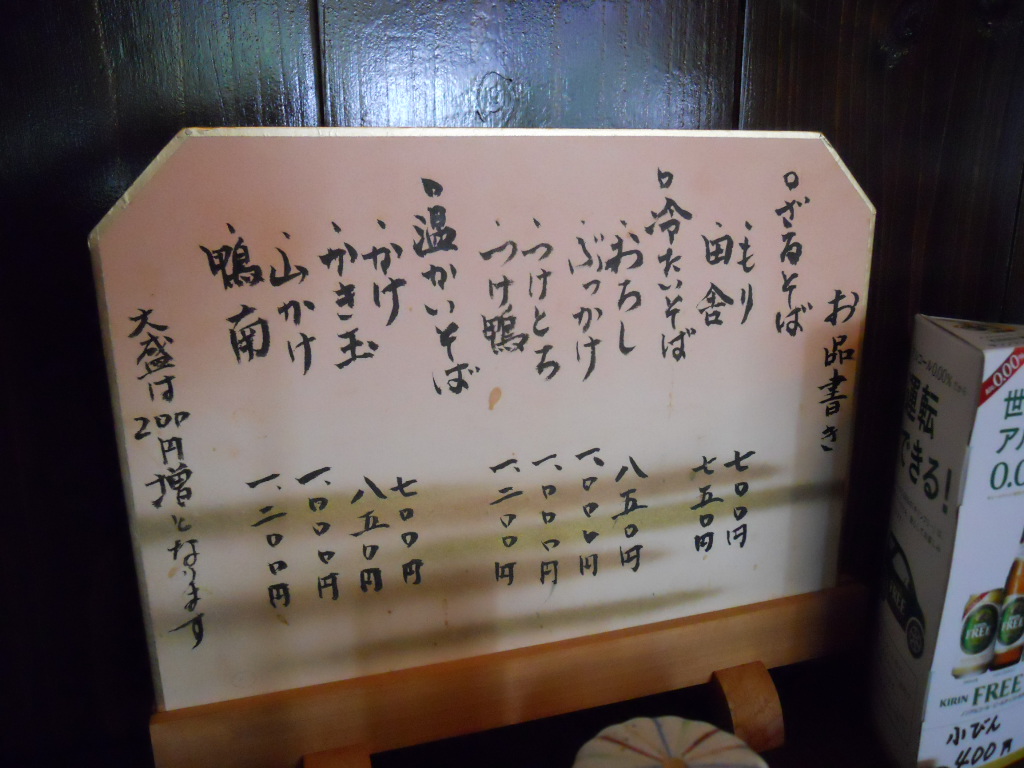 お品書き
ざるそば
もり 七〇〇円
田舎 七五〇円
冷たいそば
おろし 八五〇円
ぶっかけ 一、〇〇〇円
つけとろ 一、〇〇〇円
つけ鴨 一、二〇〇円
温かいそば
かけ 七〇〇円
かき玉 八五〇円
山かけ 一、〇〇〇円
鴨南 一、二〇〇円
大盛は200円増となります
0.00%
運転
できる!
世
アル
0.0
FREE
FREE
KIRIN FREE
小びん
400円